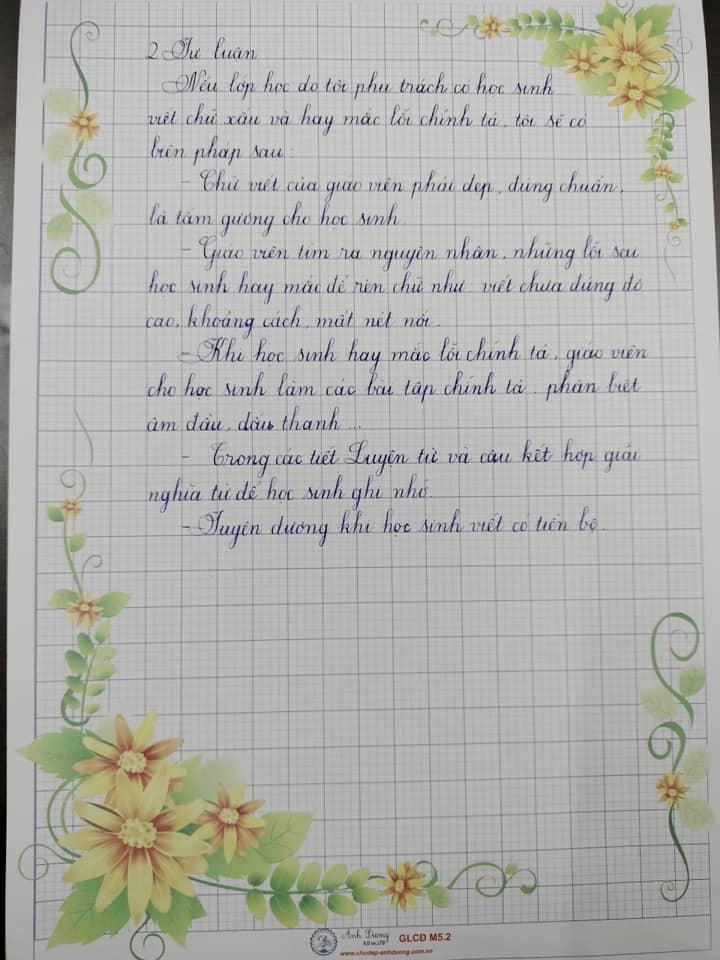 2. Tự luận
Nếu lớp học do tôi phụ trách có học sinh
viết chữ xấu và hay mắc lỗi chính tả, tôi sẽ có
biện pháp sau:
- Chữ viết của giáo viên phải đẹp, đúng chuẩn,
là tấm gương cho học sinh.
- Giáo viên tìm ra nguyên nhân, những lỗi sai
học sinh hay mắc để rèn chữ như viết chưa đúng độ
cao, khoảng cách, mất nét nối.
- Khi học sinh hay mắc lỗi chính tả, giáo viên
cho học sinh làm các bài tập chính tả: phân biệt
âm đầu, dấu thanh ...
- Trong các tiết Luyện từ và câu kết hợp giải
nghĩa từ để học sinh ghi nhớ.
- Tuyên dương khi học sinh viết có tiến bộ.
Ánh Dương
GLCĐ M5.2
www.chudep-anhduong.com.vn